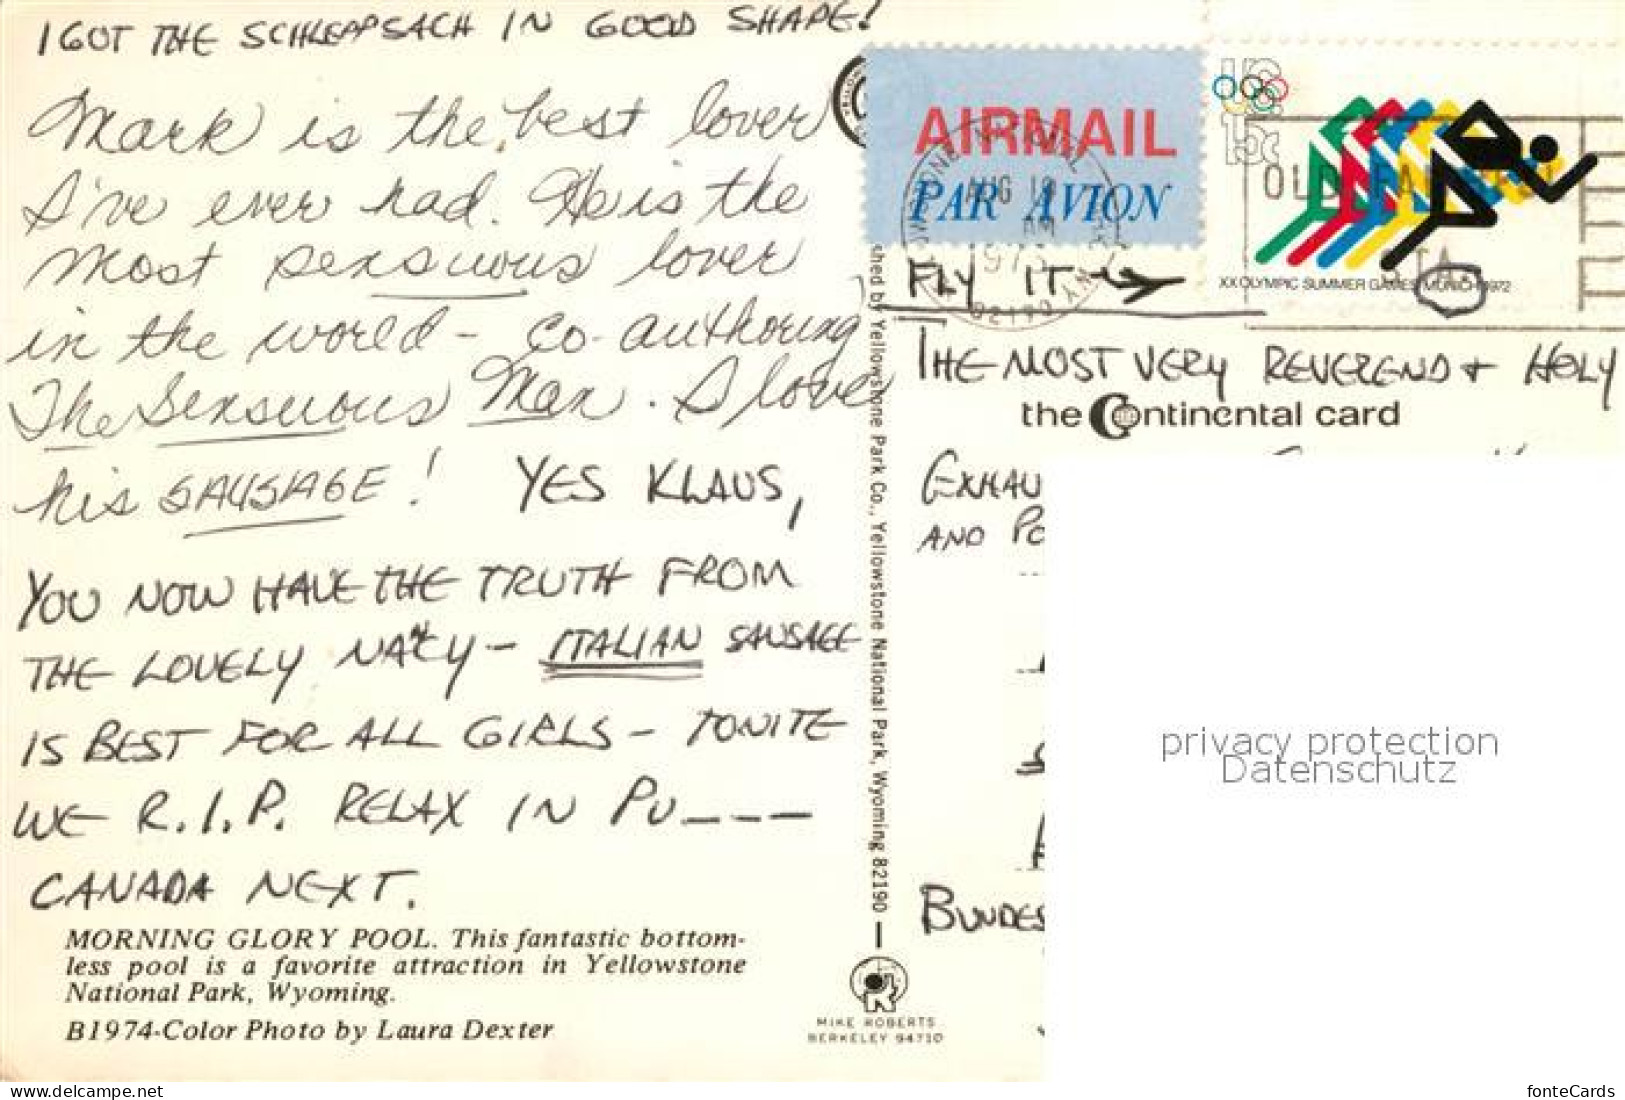 I GOT THE SCHLEAPSACH IN GOOD SHAPE!
Mark is the best lover
I've ever had. He is the
most sensuous lover
in the world - co-authoring
The Sensuous Man. I love
his SAUSAGE! YES KLAUS,
YOU NOW HAVE THE TRUTH FROM
THE LOVELY NANCY - ITALIAN SAUSAGE
IS BEST FOR ALL GIRLS - TONITE
WE R.I.P. RELAX IN PU___
CANADA NEXT.
MORNING GLORY POOL. This fantastic bottom-
less pool is a favorite attraction in Yellowstone
National Park, Wyoming.
B1974-Color Photo by Laura Dexter
shed by Yellowstone Park Co., Yellowstone National Park, Wyoming 82190
MIKE ROBERTS
BERKELEY 94710
AIRMAIL
PAR AVION
AUG
AM
82190
US
15c
XX OLYMPIC SUMMER GAMES MUNICH 1972
FLY IT
THE MOST VERY REVEREND + HOLY
the Continental card
EXHAU
AND PO
BUNDES
privacy protection
Datenschutz
delcampe.net
fonteCards